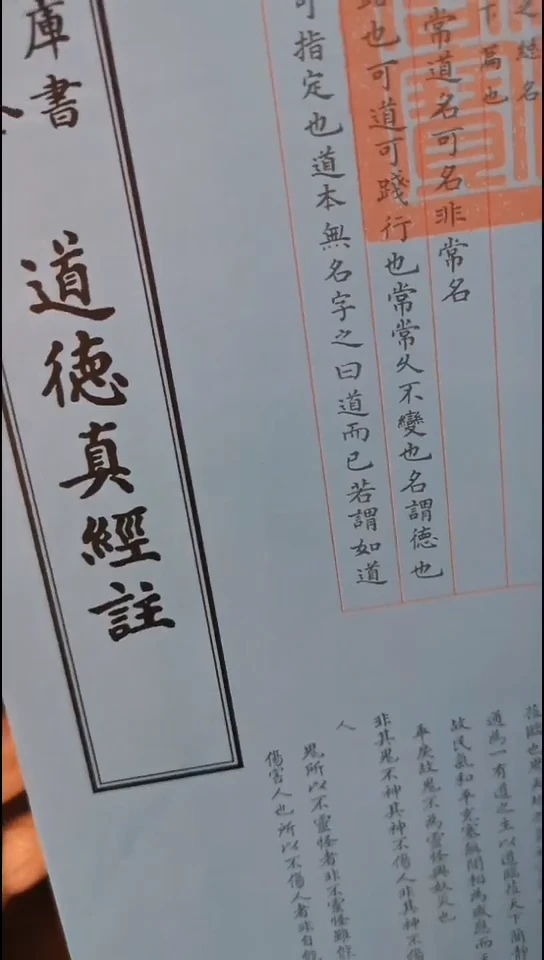 庫書
道德真經註
之總名
下篇也
常道名可名非常名
也可道可踐行也常常久不變也名謂德也
可指定也道本無名字之曰道而已若謂如道
道為一有道之主以道臨蒞天下簡靜
故民氣和平充塞無間相為感應而
乖戾故鬼不為靈怪興妖災也
非其鬼不神其神不傷人非其神不傷
人
鬼所以不靈怪者非不靈怪雖能
傷害人也所以不傷人者非自能